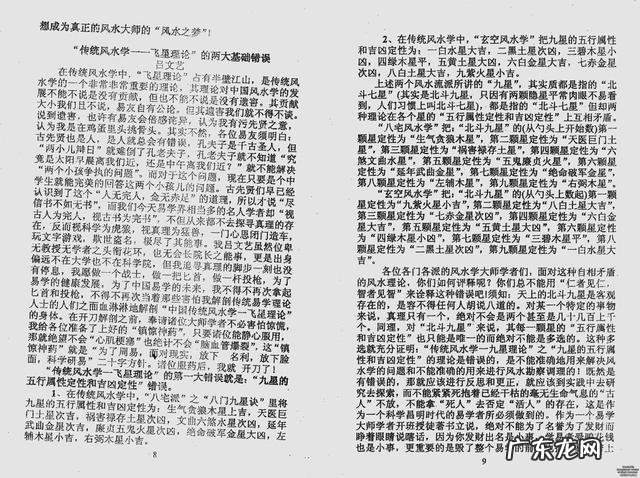 想成为真正的风水大师的"风水之梦"!
"传统风水学——飞星理论"的两大基础错误
吕文艺
在传统风水学中,"飞星理论"占有半壁江山,是传统风
水学的一个非常非常重要的理论,其理论对中国风水学的发
展不能不说是没有贡献,但也不能不说是没有遗害。其贡献
大小我们且不说,易友自有公论,但其遗害我们就不得不谈。
说到遗害,也许有易友会倍感诧异,认为我有污先贤之意,
认为我是在鸡蛋里头挑骨头。其实不然,各位易友须明白:
古先贤也是人,是人就总会有错误,孔夫子是千古圣人,但
"两小儿辩日"就难倒了孔老夫子,孔老夫子就不知道"究
竟是太阳早晨离我们近,还是中午离我们近?"就不能解决
"两个小孩争执的问题"。而对于这个问题,现在只要是个中
学生就能完美的回答这两个小孩儿的问题。古先贤们早已经
认识到了这个"人无完人,金无赤足"的道理,所以才说"尽
信书不如无书"。而我们今天易学界相当多的名人学者却"视
古人为完人,视古书为完书",不但从来都不去探寻真理的存
在,反而视科学为虎狼,视真理为猛兽,一门心思闭门造车,
玩文字游戏,欺世盗名,极尽了其能事。我吕文艺虽然位卑
无教授无学者之头衔灰环,也无会长院长之能事,更是出身
偏远不在大学也不在科学院,但我追寻真理的脚步一刻也没
有停息,我愿做一个战士,做一把匕首,做一杆投枪,为了
易学的健康发展,为了中国易学的未来,我不得不再次拿起
匕首和投枪,不得不再次当着那些害怕我解剖传统易学理论
人士的人们之面血淋淋地解剖"中国传统风水学—飞星理论"
的身体。在开刀解剖之前,奉请诸位大师学者不必害怕惊慌,
我给各位准备了上好的"镇惊神药",只要诸位能静心服用,
那就绝望不会"心肌梗塞"也绝计不会"脑血管爆裂",这"镇
惊神药"就是"为了周易,面对现实,放下 名利,放下脸
面,科学研易"二十字方针。诸位服药后,我就 开刀了!
"传统风水学—飞星理论"的第一大错误就是:"九星的
五行属性定性和吉凶定性"错误。
1、在传统风水学中,"八宅派"之"八门九星诀"里将
九星的五行属性和吉凶定性为:生气贪狼木星上吉,天医巨
门土星次吉,祸害禄存土星次凶,文曲六煞水星次凶,延年
武曲金星次吉,廉贞五鬼火星次凶,绝命破军金星大凶,左
辅木星小吉,右弼木星小吉。
8
2、在传统风水学中,"玄空风水学"把九星的五行属性
和吉凶定性为:一白水星大吉,二黑土星次凶,三碧木星小
凶,四绿木星平,五黄土星大凶,六白金星大吉,七赤金星
次凶,八白土星大吉,九紫火星小吉。
上述两个风水流派所讲的"九星",其实质都是指的"北
斗七星"(其实是北斗九星,只因有两颗隐星平常肉眼不易看
到,人们习惯上叫北斗七星),都是指的"北斗七星"但却两
种理论在各个星的"五行属性定性和吉凶定性"上互相矛盾。
"八宅风水学"把:"北斗九星"的(从勺头上开始数)第一
颗星定性为"生气贪狼木星",第二颗星定性为"天医巨门土
星",第三颗星定性为"祸害禄存土星",第四颗星定性为"六
煞文曲水星",第五颗星定性为"五鬼廉贞火星",第六颗星
定性为"延年武曲金星",第七颗星定性为"绝命破军金星",
第八颗星定性为"左辅木星",第九颗星定性为"右弼木星"。
"玄空风水学"把,"北斗九星"的(从勺头上数起)第一颗
星定性为"九紫火星小吉",第二颗星定性为"八白土星大吉",
第三颗星定性为"七赤金星次凶",第四颗星定性为"六白金
星大吉",第五颗星定性为"五黄土星大凶",第六颗星定性
为"四绿木星小凶",第七颗星定性为"三碧木星平",第八
颗星定性为"二黑土星次凶",第九颗星定性为"一白水星大
吉"。
各位各门各派的风水大师学者们,面对这种自相矛盾
的风水理论,你们如何评解呢?你们总不能用"仁者见仁,
智者见智"来诠释这种错误吧!须知,天上的北斗九星是客观
存在的,是容不得任何人胡说八道的。对某一个特定的事物
来说,真理只有一个,绝对不会是两个甚至是几十几百上千
个。同理,对"北斗九星"来说,其每一颗星的"五行属性
和吉凶定性"也只能是唯一的而绝对不可能是多选的。这种多
选就充分证明:"传统风水学——九星理论"之"九星的五行
属性和吉凶定性"的理论是错误的,是不能准确地用来解决风
水学的问题和不能准确的用来进行风水勘察调理的!既然是
有错误的,那就应该进行反思和更正,就应该到实践中去研
究去探索,而不能紧紧死抱着已经干枯的毫无生命气息的"古
人"不放,不能拿"死人"去否定"活人"的存在,这是作
为一个科学昌明时代的易学者所必须做到的。作为一个易学
大师学者开班授徒著书立说,绝对不能为了名誉为了发财而
睁着眼睛说瞎话,因为你发财出名是小事,
也是小事,更重要的是毁了整个易学的前
9
广东龙网